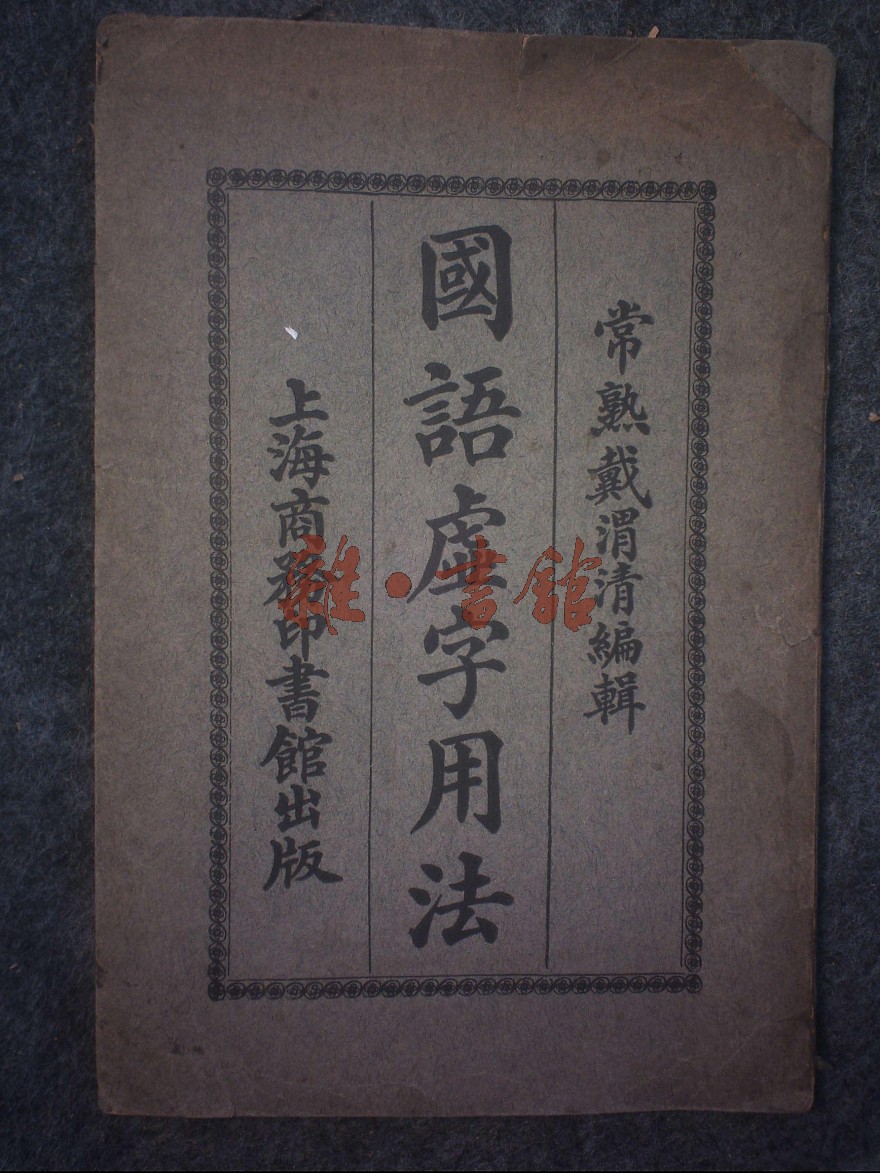 常熟戴渭清編輯
國語虛字用法
上海商務印書館出版
雜·書館